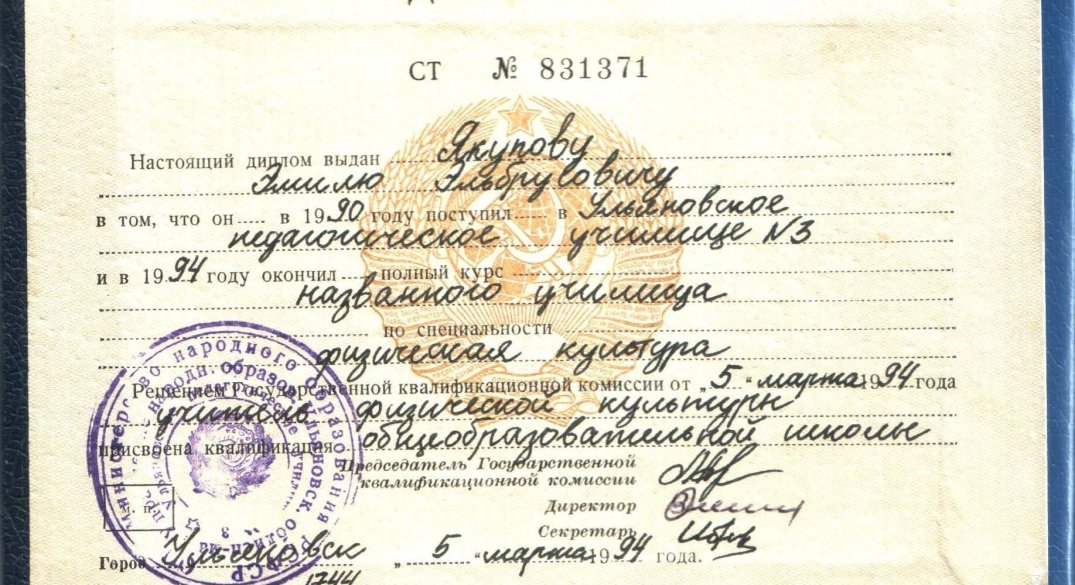 СТ № 831371
Настоящий диплом выдан Якупову
Эмилю Эльбрусовичу
в том, что он в 1990 году поступил в Ульяновское
педагогическое училище N3
и в 1994 году окончил полный курс
названного училища
по специальности
физическая культура
Решением Государственной квалификационной комиссии от „5“ марта 1994 года
учитель физической культуры
присвоена квалификация общеобразовательной школы
Председатель Государственной
квалификационной комиссии
Директор
Секретарь
м. п.
Город Ульяновск „5“ марта 1994 года.
1744
Министерство народного образования РСФСР